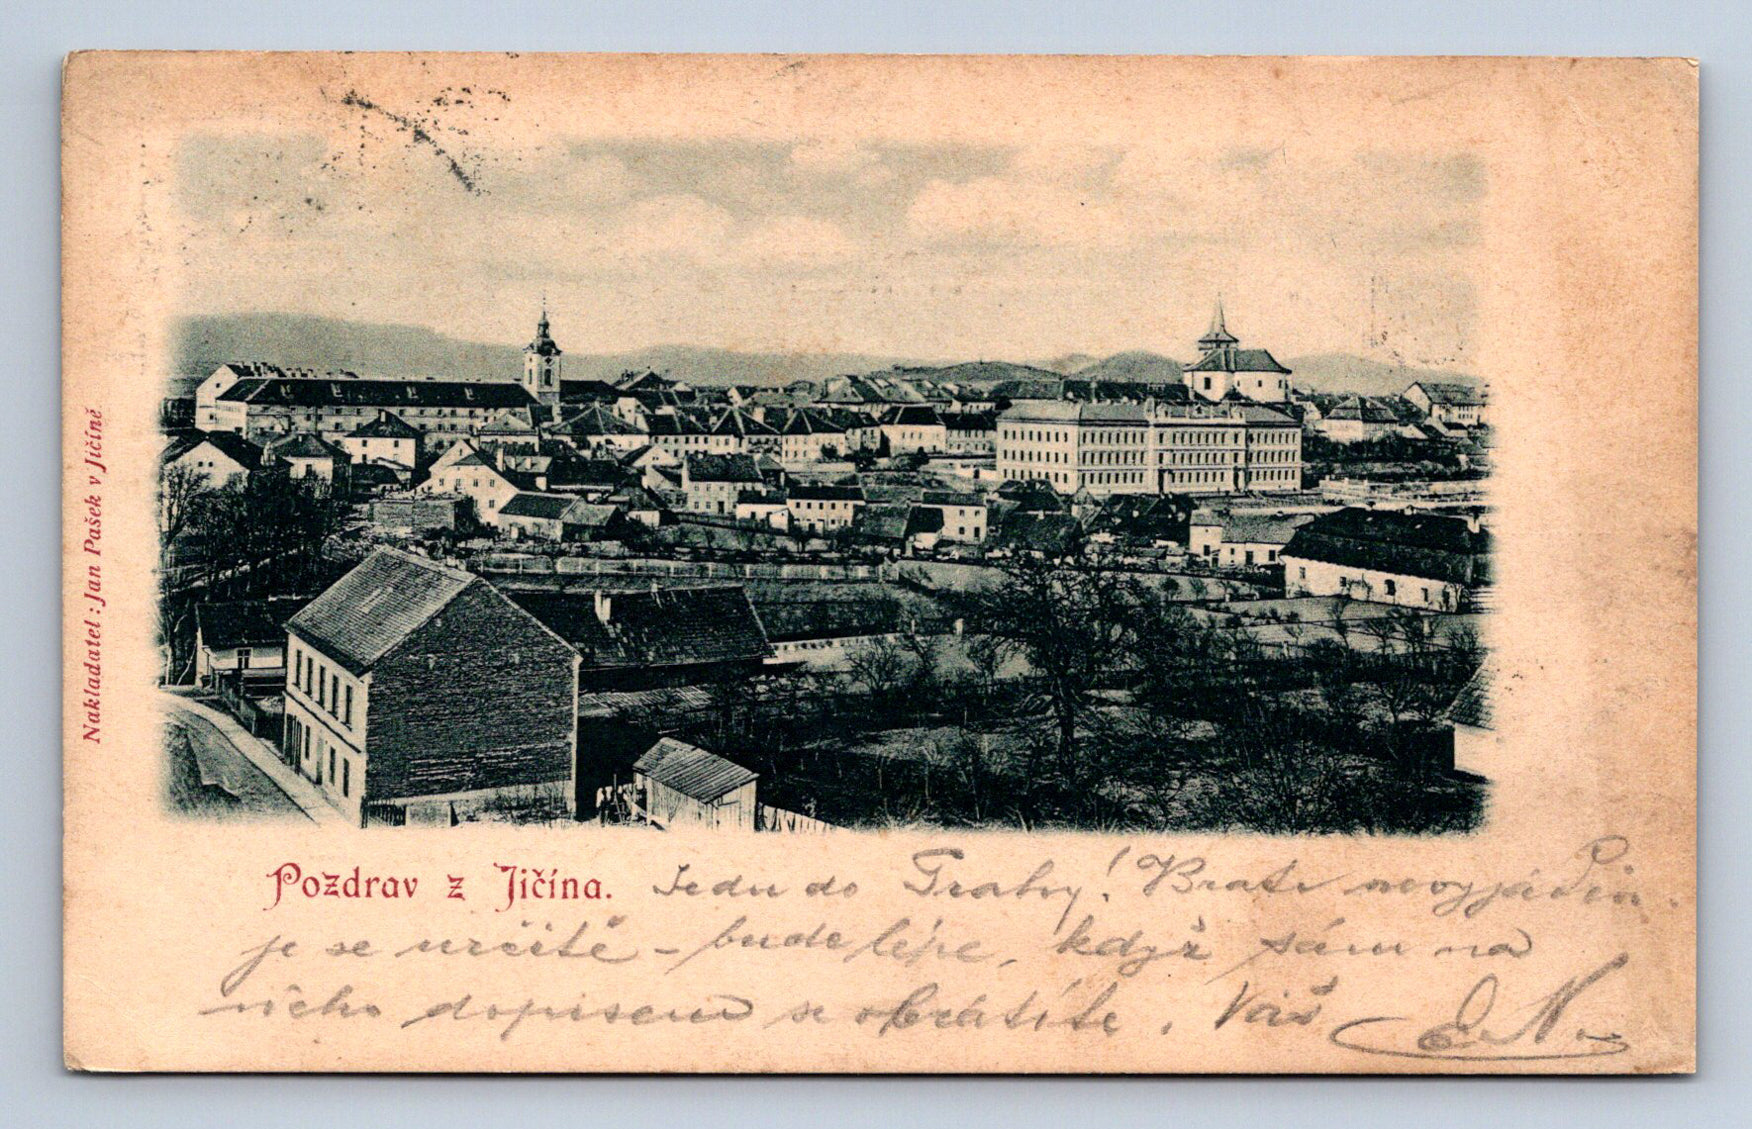 Nakladatel: Jan Pašek v Jičíně.
Pozdrav z Jičína. Jedu do Prahy! Bratr
je se určitě – bude lépe, když sám na
něho dopisem se obrátíte. Váš E. N.